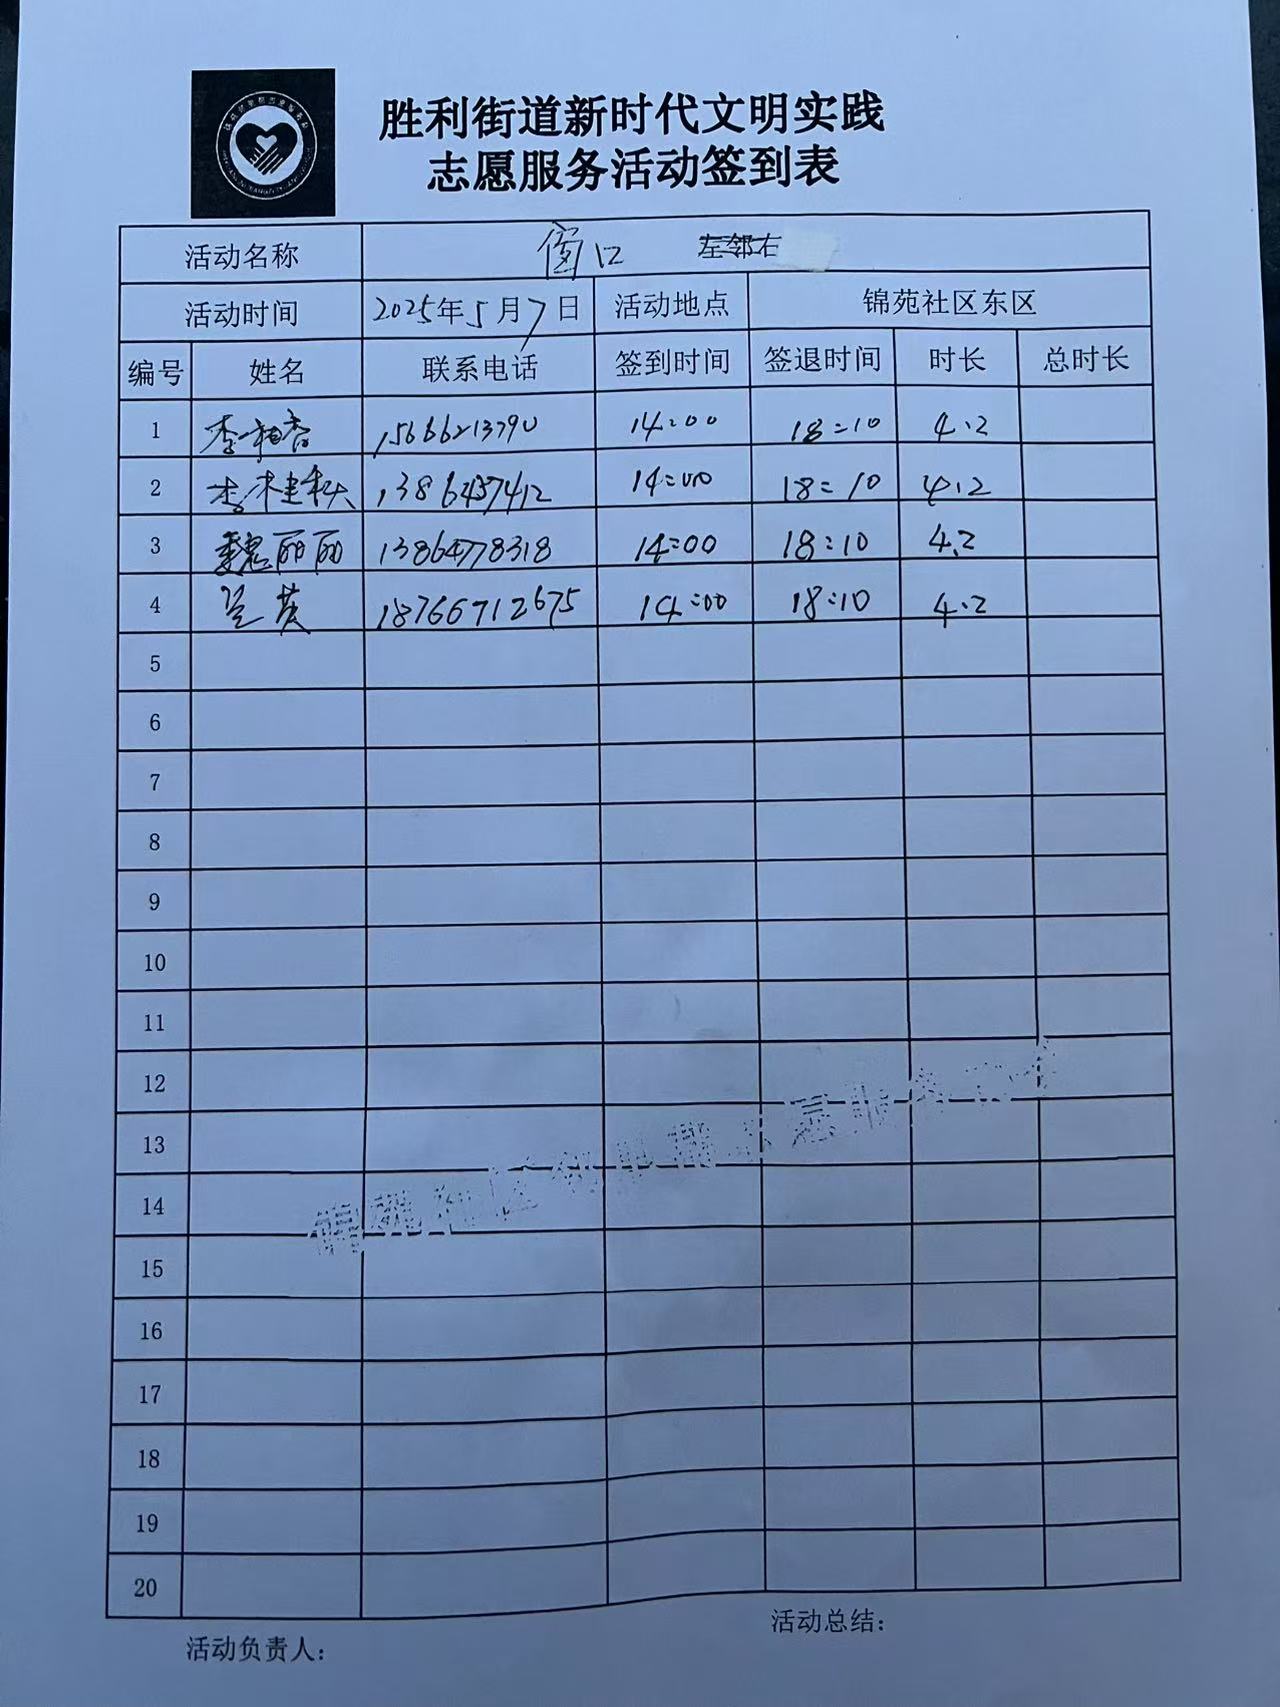 胜利街道新时代文明实践
志愿服务活动签到表
活动名称 窗口 左邻右
活动时间 2025年5月7日 活动地点 锦苑社区东区
编号 姓名 联系电话 签到时间 签退时间 时长 总时长
1 李相香 15666213790 14:00 18:10 4.2
2 李桂秋 1386437412 14:00 18:10 4.2
3 魏丽丽 13864778318 14:00 18:10 4.2
4 兰英 18766712675 14:00 18:10 4.2
5
6
7
8
9
10
11
12
13
14
15
16
17
18
19
20
活动负责人： 活动总结：